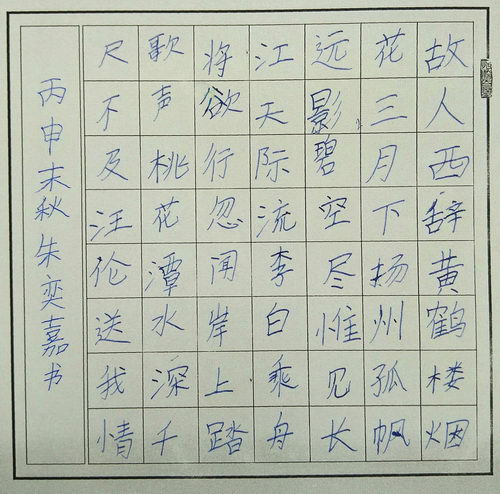 故人西辞黄鹤楼烟
花三月下扬州孤帆
远影碧空尽惟见长
江天际流李白乘舟
将欲行忽闻岸上踏
歌声桃花潭水深千
尺不及汪伦送我情
丙申末秋朱奕嘉书